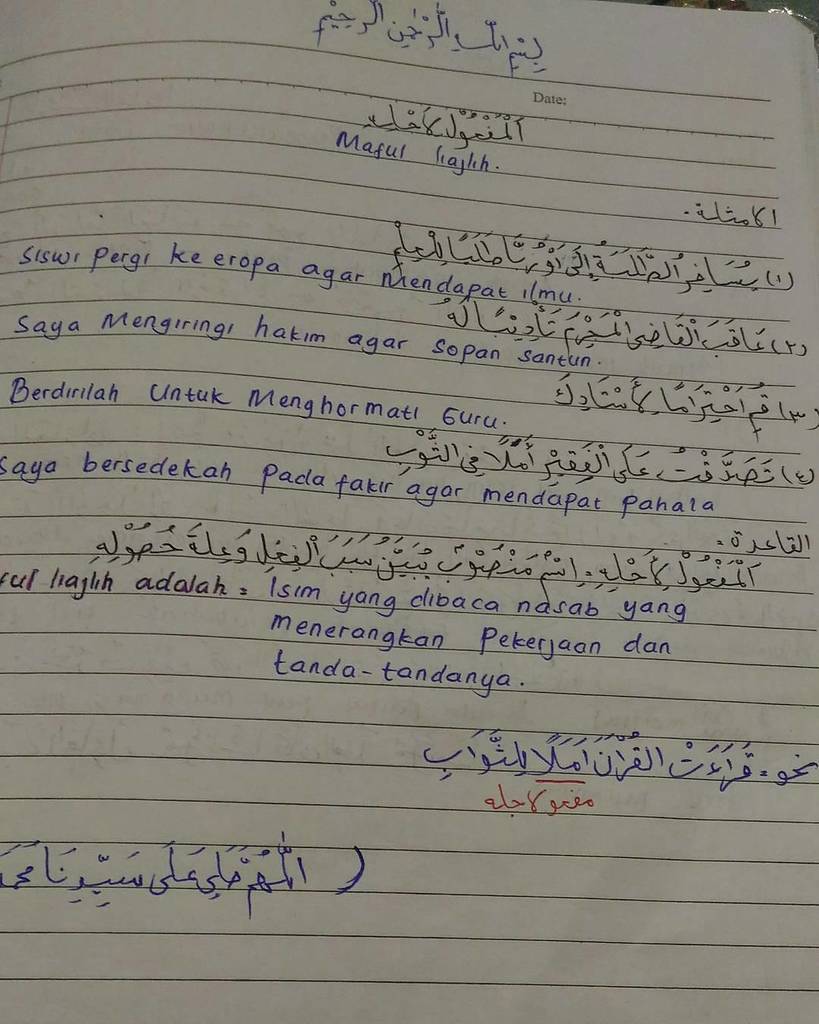 بِسْمِ اللهِ الرَّحْمٰنِ الرَّحِيْمِ
Date:
اَلْمَفْعُوْلُ لِأَجْلِهِ
Maful liajlih.
الامثلة.
(١) يُسَافِرُ الطَّلَبَةُ إِلَى أَوْرُبَّا طَلَبًا لِلْعِلْمِ
Siswi pergi ke eropa agar Mendapat ilmu.
(٢) عَاقَبَ الْقَاضِى الْمُجْرِمَ تَأْدِيْبًا لَهُ
Saya Mengiringi hakim agar sopan santun.
(٣) قُمْ اِحْتِرَامًا لِأُسْتَاذِكَ
Berdirilah untuk Menghormati Guru.
(٤) تَصَدَّقْتُ عَلَى الْفَقِيْرِ أَمَلًا فِى الثَّوَبِ
saya bersedekah pada fakir agar mendapat pahala
القاعدة.
اَلْمَفْعُوْلُ لِأَجْلِهِ = اِسْمٌ مَنْصُوْبٌ يُبَيِّنُ سَبَبَ الْفِعْلِ وَعِلَّةَ حُصُوْلِهِ
ful liajlih adalah = Isim yang dibaca nasab yang
menerangkan pekerjaan dan
tanda-tandanya.
نحو = قَرَاءَتْ القُرْآنَ اَمَلًا لِلثَّوَابِ
مفعولاجله
( اللّٰهُمَّ صَلِّى عَلَى سَيِّدِنَا محمد